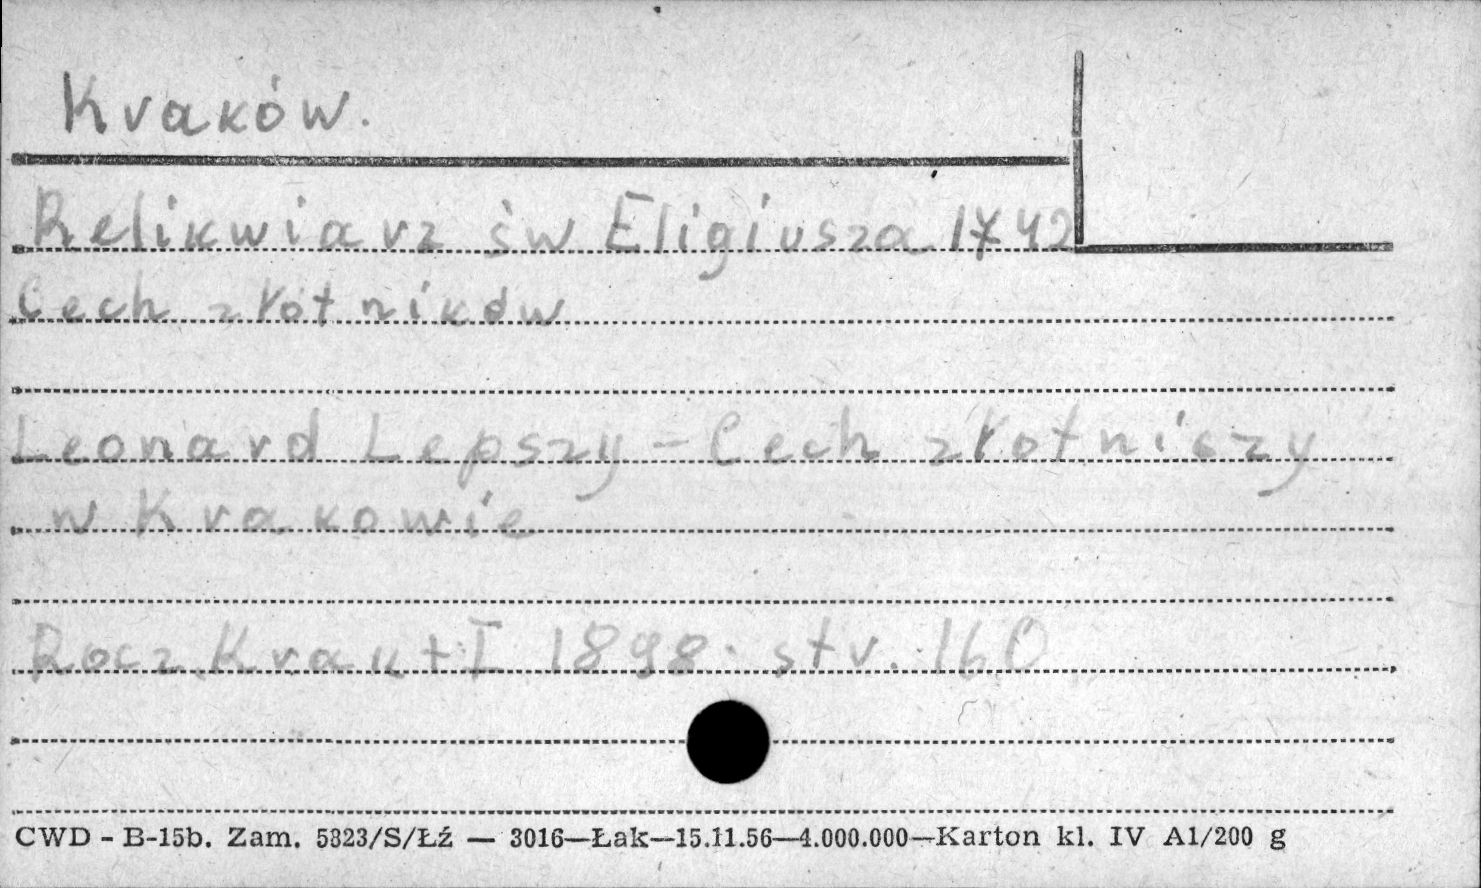 Kraków.
Relikwiarz św Eligiusza 1742
Cech złotników
Leonard Lepszy – Cech złotniczy
w Krakowie
Rocz. Krak t I 1898. str. 160
CWD - B-15b. Zam. 5323/S/Łź — 3016—Łak—15.11.56—4.000.000—Karton kl. IV A1/200 g